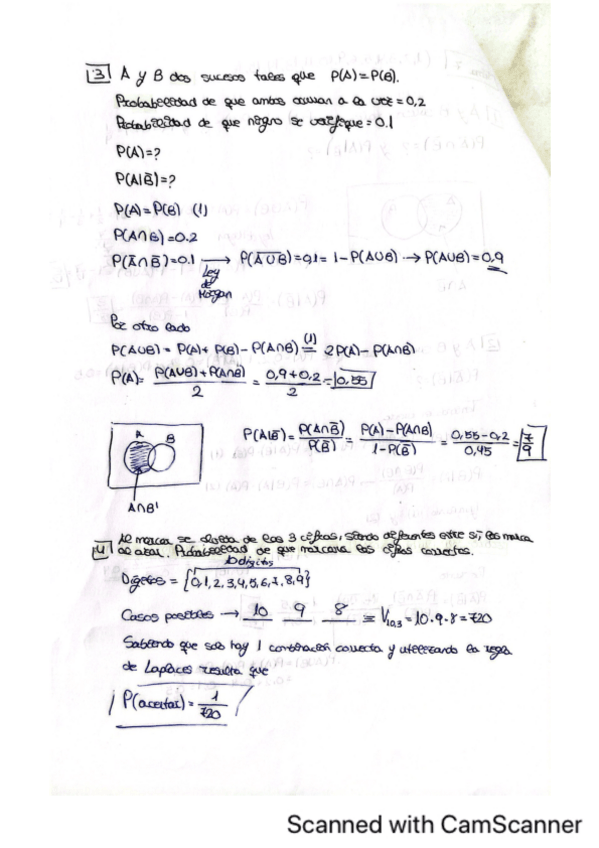 3 A y B dos sucesos tales que P(A)=P(B).
Probabilidad de que ambos ocurran a la vez=0,2
Probabilidad de que ninguno se verifique=0.1
P(A)=?
P(A|B̄)=?
P(A)=P(B) (1)
P(A∩B)=0.2
P(Ā∩B̄)=0.1 → P(A̅U̅B̅)=0,1=1-P(AUB) → P(AUB)=0,9
Ley
de
Morgan
Por otro lado
P(AUB)= P(A)+ P(B)-P(A∩B) (1)= 2P(A)-P(A∩B)
P(A)= P(AUB)+P(A∩B)/2 = 0,9+0,2/2 = 0,55
A B
P(A|B̄)= P(A∩B̄)/P(B̄) = P(A)-P(A∩B)/1-P(B) = 0,55-0,2/0,45 = 7/9
A∩B'
Al marcar se olvida de las 3 cifras, siendo diferentes entre sí, las marca
4 al azar. Probabilidad de que marcara las cifras correctas.
10 dígitos
Dígitos = {0,1,2,3,4,5,6,7,8,9}
Casos posibles → 10 9 8 ≡ V10,3 = 10·9·8=720
Sabiendo que solo hay 1 combinación correcta y utilizando la regla
de Laplace resulta que
P(acertar)= 1/720
Scanned with CamScanner